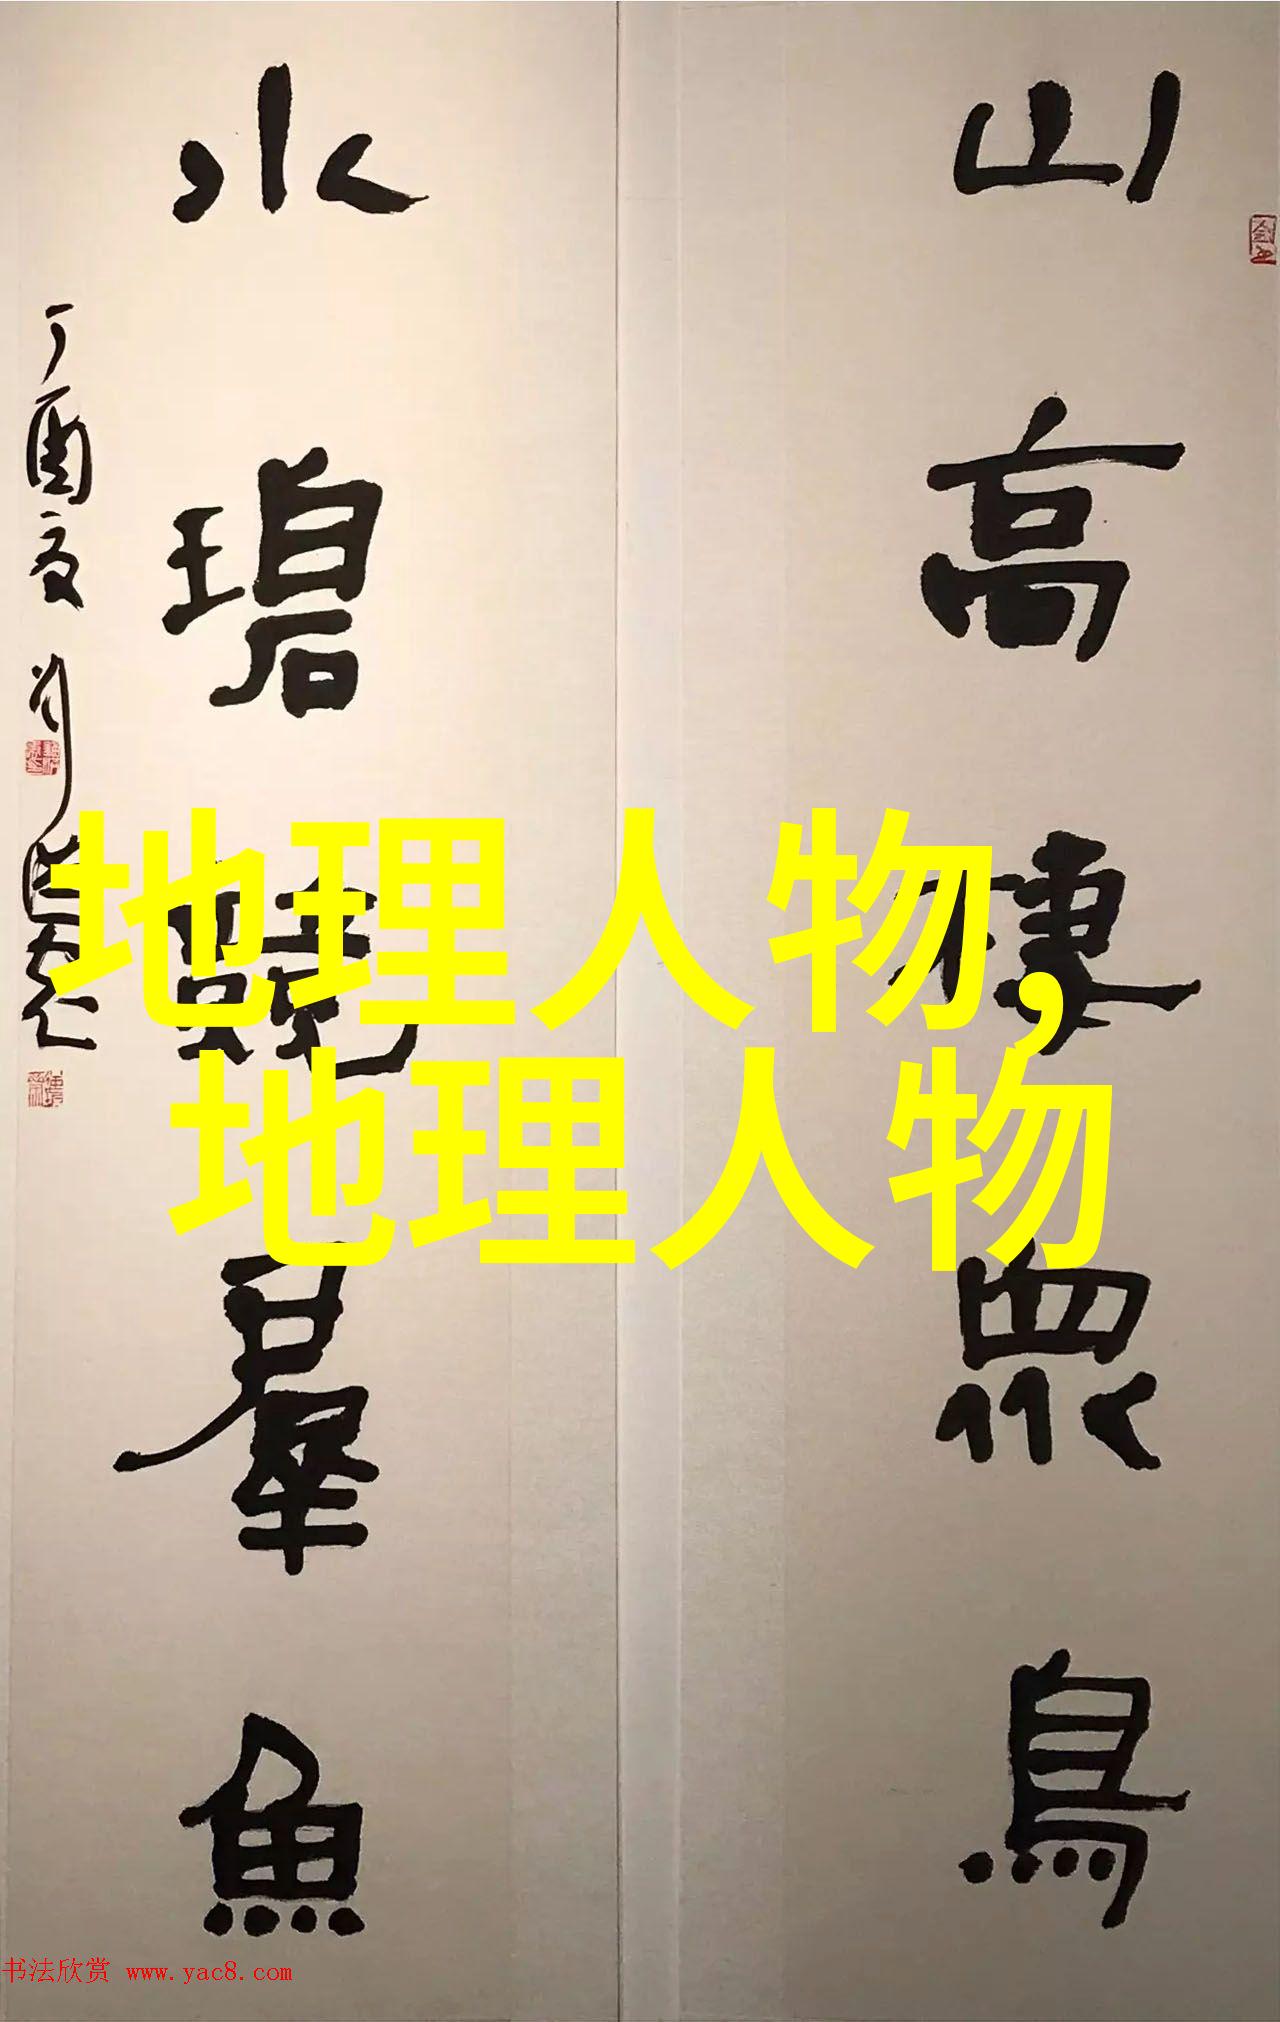 山高棲眾鳥
水碧競羣魚
丁酉夏
地理人物,
地理人物
书法欣赏 www.yac8.com